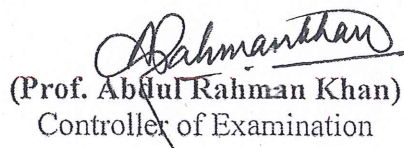 ARahmankhan
(Prof. Abdul Rahman Khan)
Controller of Examination